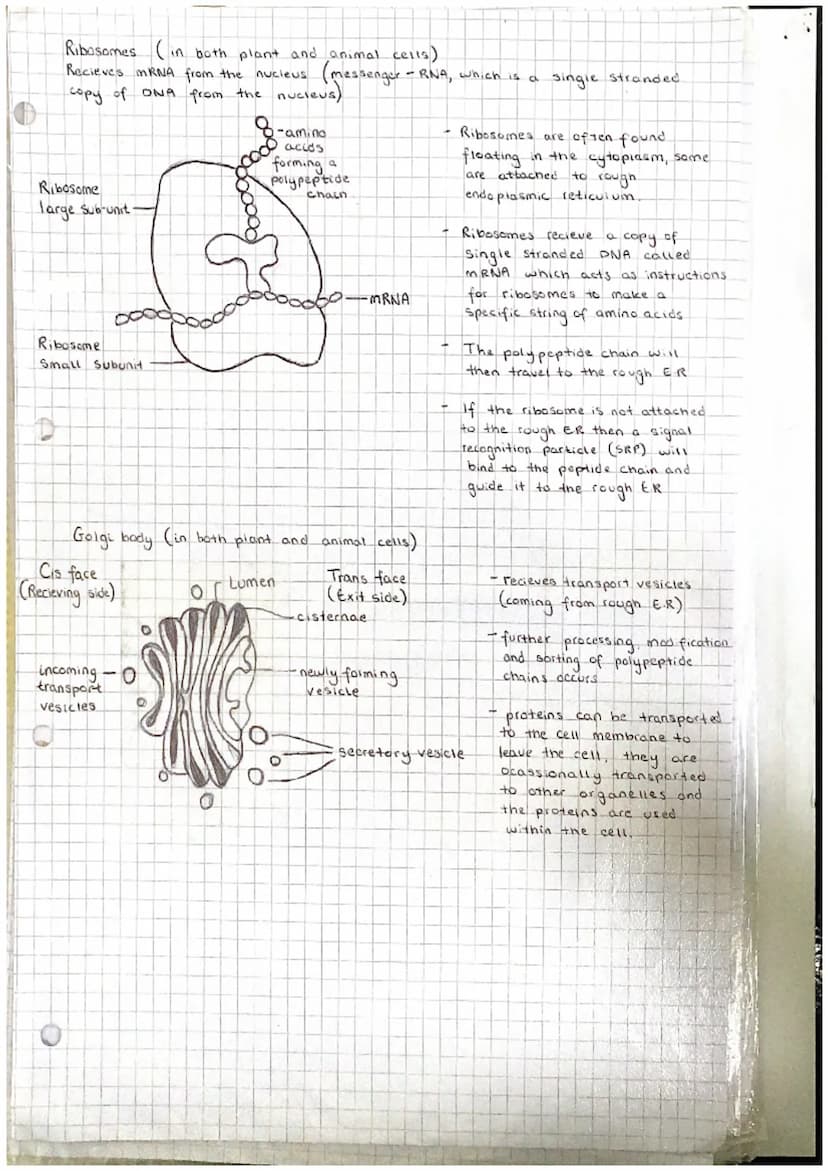 Ribosomes (in both plant and animal cells)
Recieves mRNA from the nucleus (messenger-RNA, which is a single stranded
copy of DNA from the nucleus)
-amino
acids
forming a
polypeptide
chain
Ribosome
large sub-unit
mRNA
Ribosome
Small subunit
- Ribosomes are often found
floating in the cytoplasm, some
are attached to rough
endoplasmic reticulum.
- Ribosomes recieve a copy of
single stranded DNA called
mRNA which acts as instructions
for ribosomes to make a
specific string of amino acids
- The polypeptide chain will
then travel to the rough ER
- If the ribosome is not attached
to the rough ER then a signal
recognition particle (SRP) will
bind to the peptide chain and
guide it to the rough ER
Golgi body (in both plant and animal cells)
Cis face
(Recieving side)
Lumen
Trans face
(Exit side)
cisternae
incoming
transport
vesicles
newly forming
vesicle
secretory vesicle
- recieves transport vesicles
(coming from rough E.R)
- further processing, modification
and sorting of polypeptide
chains occurs
- proteins can be transported
to the cell membrane to
leave the cell, they are
ocassionally transported
to other organelles and
the proteins are used
within the cell.